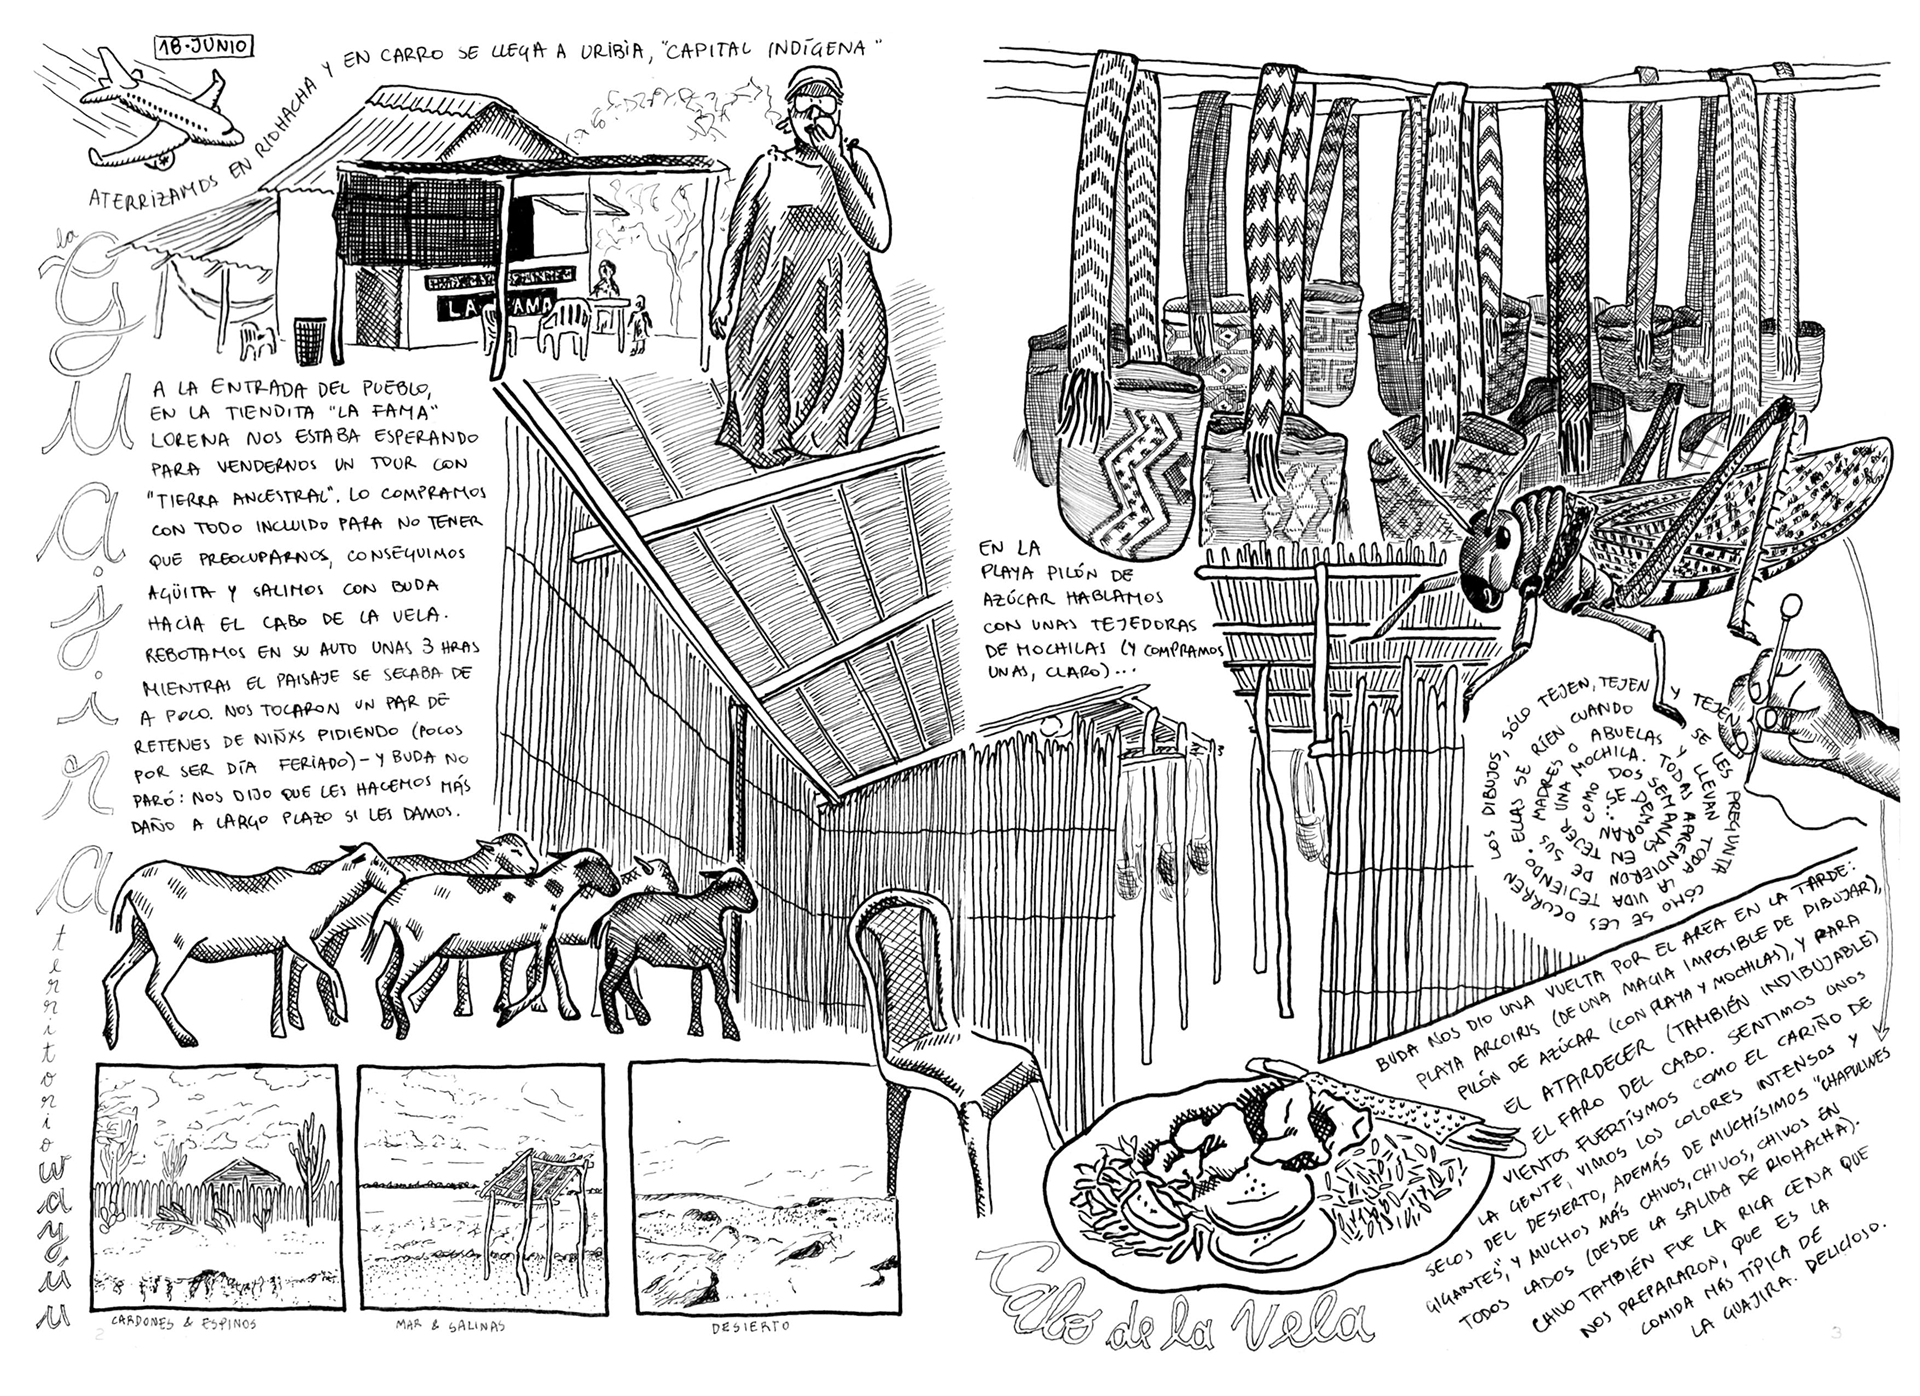 18·JUNIO
ATERRIZAMOS EN RIOHACHA Y EN CARRO SE LLEGA A URIBIA, "CAPITAL INDÍGENA"
la
Guajira
territorio wayúu
LA FAMA
A LA ENTRADA DEL PUEBLO,
EN LA TIENDITA "LA FAMA"
LORENA NOS ESTABA ESPERANDO
PARA VENDERNOS UN TOUR CON
"TIERRA ANCESTRAL". LO COMPRAMOS
CON TODO INCLUIDO PARA NO TENER
QUE PREOCUPARNOS, CONSEGUIMOS
AGÜITA Y SALIMOS CON BUDA
HACIA EL CABO DE LA VELA.
REBOTAMOS EN SU AUTO UNAS 3 HRAS
MIENTRAS EL PAISAJE SE SECABA DE
A POCO. NOS TOCARON UN PAR DE
RETENES DE NIÑXS PIDIENDO (POCOS
POR SER DÍA FERIADO) - Y BUDA NO
PARÓ: NOS DIJO QUE LES HACEMOS MÁS
DAÑO A LARGO PLAZO SI LES DAMOS.
CARDONES & ESPINOS
MAR & SALINAS
DESIERTO
2
EN LA
PLAYA PILÓN DE
AZÚCAR HABLAMOS
CON UNAS TEJEDORAS
DE MOCHILAS (Y COMPRAMOS
UNAS, CLARO)...
SE LES PREGUNTA CÓMO SE LES OCURREN LOS DIBUJOS, SÓLO TEJEN, TEJEN Y TEJEN. Y LLEVAN TODA LA VIDA TEJIENDO. ELLAS SE RÍEN CUANDO TODAS APRENDIERON DE SUS MADRES O ABUELAS Y SE DEMORAN EN TEJER UNA MOCHILA. COMO DOS SEMANAS...
BUDA NOS DIO UNA VUELTA POR EL AREA EN LA TARDE:
PLAYA ARCOIRIS (DE UNA MAGIA IMPOSIBLE DE DIBUJAR),
PILÓN DE AZÚCAR (CON PLAYA Y MOCHILAS), Y PARA
EL ATARDECER (TAMBIÉN INDIBUJABLE)
EL FARO DEL CABO. SENTIMOS UNOS
VIENTOS FUERTÍSIMOS COMO EL CARIÑO DE
LA GENTE, VIMOS LOS COLORES INTENSOS Y
SECOS DEL DESIERTO, ADEMÁS DE MUCHÍSIMOS "CHAPULINES
GIGANTES", Y MUCHOS MÁS CHIVOS, CHIVOS, CHIVOS EN
TODOS LADOS (DESDE LA SALIDA DE RIOHACHA).
CHIVO TAMBIÉN FUE LA RICA CENA QUE
NOS PREPARARON, QUE ES LA
COMIDA MÁS TÍPICA DE
LA GUAJIRA. DELICIOSO.
Cabo de la Vela
3